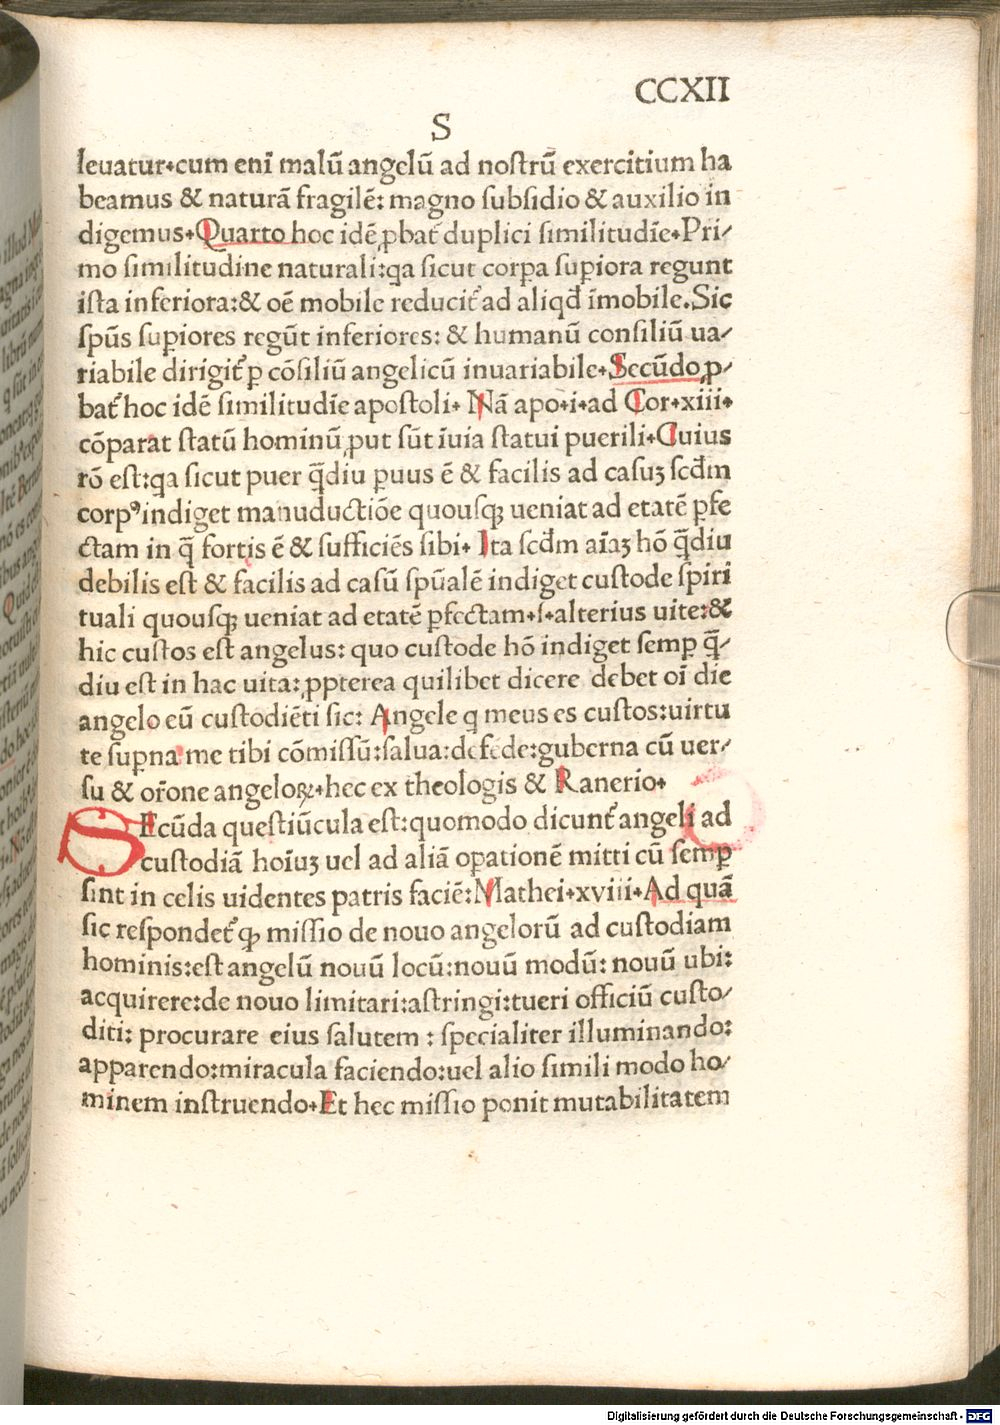 CCXII
S
leuatur.cum enī malū angelū ad nostrū exercitium ha
beamus & naturā fragilē: magno subsidio & auxilio in
digemus.Quarto hoc idē ꝓbat᷑ duplici similitudīe.Pri/
mo similitudine naturali:qa sicut corꝑa suꝑiora regunt
ista inferiora:& oē mobile reducit᷑ ad aliqđ īmobile.Sic
spūs suꝑiores regūt inferiores: & humanū consiliū ua/
riabile dirigit᷑ ꝑ cōsiliū angelicū inuariabile.Secūdo ꝓ/
bat᷑ hoc idē similitudīe apostoli. Nā apo.i.ad Cor.xiii.
cōparat statū hominū ꝓut sūt ī uia statui puerili.Cuius
rō est:qa sicut puer q̄diu paruus ē & facilis ad casuꝫ scđm
corpꝰ indiget manuductiōe quousqꝫ ueniat ad etatē ꝑfe
ctam in q̄ fortis ē & sufficiēs sibi. Ita scđm aīaꝫ hō q̄diu
debilis est & facilis ad casū spūalē indiget custode spiri
tuali quousqꝫ ueniat ad etatē ꝑfectam.s.alterius uite:&
hic custos est angelus: quo custode hō indiget semꝑ q̄/
diu est in hac uita: ꝓpterea quilibet dicere debet oī die
angelo eū custodiēti sic: Angele q meus es custos:uirtu
te suꝑna me tibi cōmissū:salua:defēde:guberna cū uer/
su & or̄one angeloꝝ.hec ex theologis & Ranerio.
SEcūda questiūcula est:quomodo dicunt᷑ angeli ad
custodiā hoīuꝫ uel ad aliā oꝑationē mitti cū semꝑ
sint in celis uidentes patris faciē:Mathei.xviii.Ad quā
sic respondet᷑ ꝙ missio de nouo angelorū ad custodiam
hominis:est angelū nouū locū:nouū modū: nouū ubi:
acquirere:de nouo limitari:astringi:tueri officiū custo/
diti: procurare eius salutem : specialiter illuminando:
apparendo:miracula faciendo:uel alio simili modo ho/
minem instruendo.Et hec missio ponit mutabilitatem
Digitalisierung gefördert durch die Deutsche Forschungsgemeinschaft - DFG